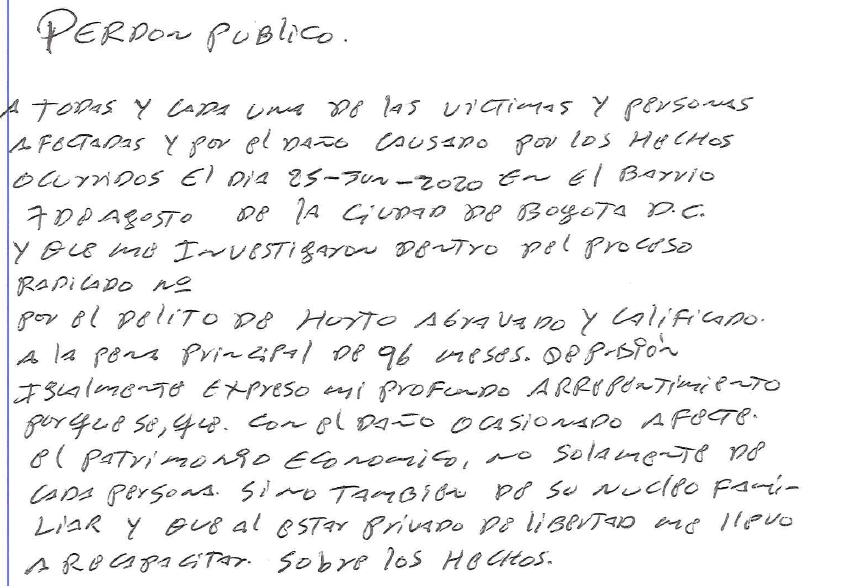 PERDON PUBLICO.
A TODAS Y CADA UNA DE las VICTIMAS Y personas
AFECTADAS Y por el DAÑO CAUSADO por los HECHOS
OCURRIDOS El DIA 25-JUN-2020 En El Barrio
7 DE AGOSTO DE lA CIUDAD DE BOGOTA D.C.
Y QUE me Investigaron Dentro Del Proceso
RADICADO Nº
por el Delito DE Hurto Agravado Y Calificado.
A la pena Principal DE 96 meses. DE prisión
Igualmente Expreso mi Profundo ARREPENTIMIENTO
porque se, que. con el DAÑO OCASIONADO AFECTE.
el PATRIMONIO ECONOMICO, no Solamente DE
CADA persona. Sino También DE Su Nucleo FAMI-
LIAR Y QUE al estar Privado De libertad me llevo
A RECAPACITAR. Sobre los HECHOS.